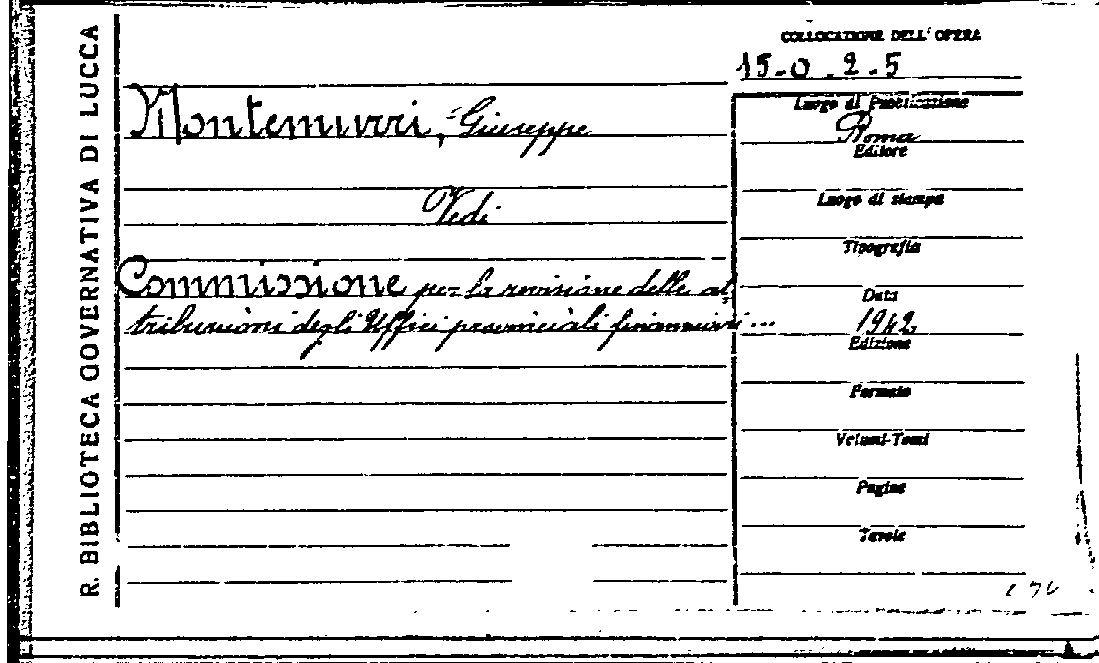 R. BIBLIOTECA GOVERNATIVA DI LUCCA
COLLOCAZIONE DELL' OPERA
15-0.2.5
Montemurri, Giuseppe
Vedi
Commissione per la revisione delle at-
tribuzioni degli Uffici provinciali finanziari...
Luogo di Pubblicazione
Roma
Editore
Luogo di stampa
Tipografia
Data
1942
Edizione
Formato
Volumi-Tomi
Pagine
Tavole